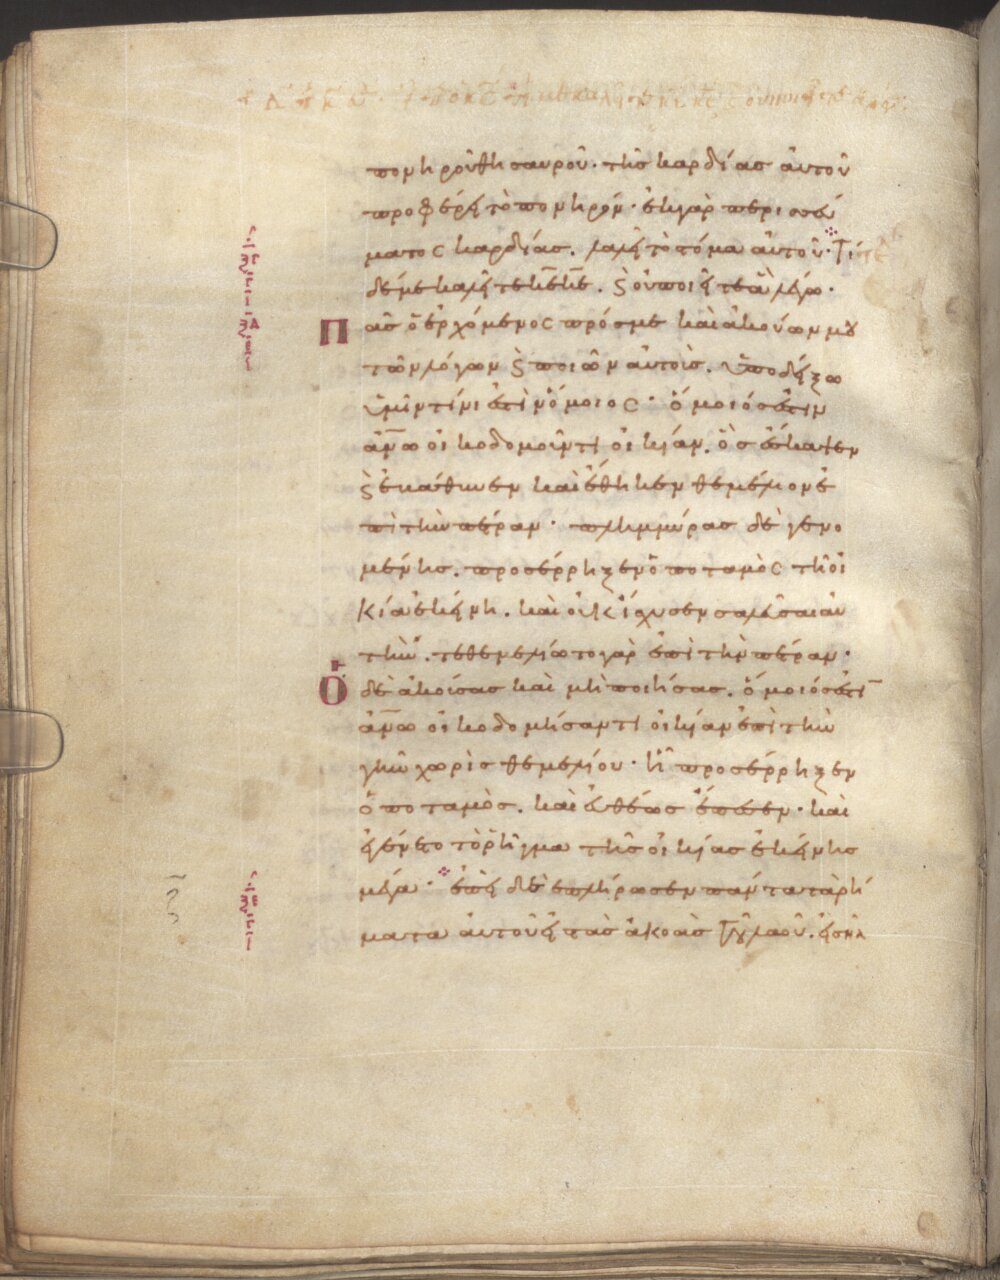 πονηροῦ θησαυροῦ· τῆς καρδίας αὐτοῦ
προφέρει τὸ πονηρόν· ἐκ γὰρ περισσεύ
ματος καρδίας. λαλεῖ τὸ στόμα αὐτοῦ· Τί
δέ με καλεῖτε κ̅ε̅ κ̅ε̅. ϛ οὐ ποιεῖτε ἃ λέγω·
Πᾶς ὁ ἐρχόμενος πρός με καὶ ἀκούων μου
τῶν λόγων ϛ ποιῶν αὐτοὺς. ὑποδείξω
ὑμῖν τίνι ἐστὶν ὅμοιος· ὅμοιός ἐστιν
ἀν̅ω οἰκοδομοῦντι οἰκίαν. ὃς ἔσκαψεν
ϛ ἐβάθυνεν καὶ ἔθηκεν θεμέλιον ἐ
πὶ τὴν πέτραν· πλημμύρας δὲ γενο
μένης. προσέρρηξεν ὁ ποταμὸς τῇ οἰ
κίᾳ ἐκείνῃ. καὶ οὐκ ἴσχυσεν σαλεῦσαι αὐ
τὴν. τεθεμελίωτο γὰρ ἐπὶ τὴν πέτραν·
Ὁ δὲ ἀκούσας καὶ μὴ ποιήσας. ὅμοιός ἐστι̅
ἀν̅ω οἰκοδομήσαντι οἰκίαν ἐπὶ τὴν
γῆν χωρὶς θεμελίου· ᾗ προσέρρηξεν
ὁ ποταμὸς. καὶ εὐθέως ἔπεσεν· καὶ
ἐγένετο τὸ ῥῆγμα τῆς οἰκίας ἐκείνης
μέγα· ἐπεὶ δὲ ἐπλήρωσεν πάντα τὰ ῥή
ματα αὐτοῦ εἰς τὰς ἀκοὰς τοῦ λαοῦ. εἰσῆλ